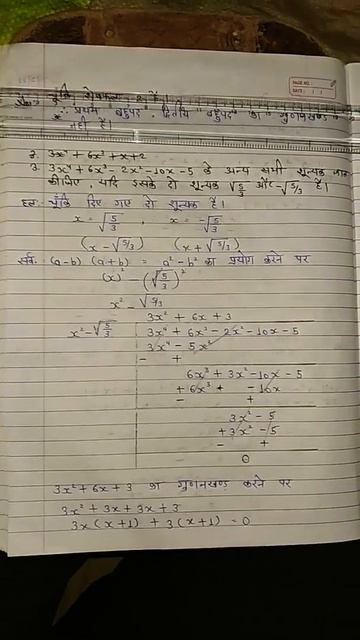 PAGE NO.
DATE: / /
चूंकि शेषफल
∴ प्रथम बहुपद, द्वितीय बहुपद का गुणनखण्ड
नहीं है।
2. 3x⁴ + 6x³ + x + 2
3. 3x⁴ + 6x³ - 2x² - 10x - 5 के अन्य सभी शून्यक ज्ञात
कीजिए, यदि इसके दो शून्यक √5/3 और -√5/3 हैं।
हल- चूंकि दिए गए दो शून्यक हैं।
x = √5/3 , x = -√5/3
(x - √5/3) (x + √5/3)
(a-b) (a+b) = a² - b² का प्रयोग करने पर
(x)² - (√5/3)²
x² - √5/3
3x² + 6x + 3
x² - √5/3 3x⁴ + 6x³ - 2x² - 10x - 5
3x⁴ - 5x²
- +
6x³ + 3x² - 10x - 5
+ 6x³ + - 10x
- +
3x² - 5
+ 3x² - 5
- +
0
3x² + 6x + 3 का गुणनखण्ड करने पर
3x² + 3x + 3x + 3
3x (x+1) + 3 (x+1) = 0